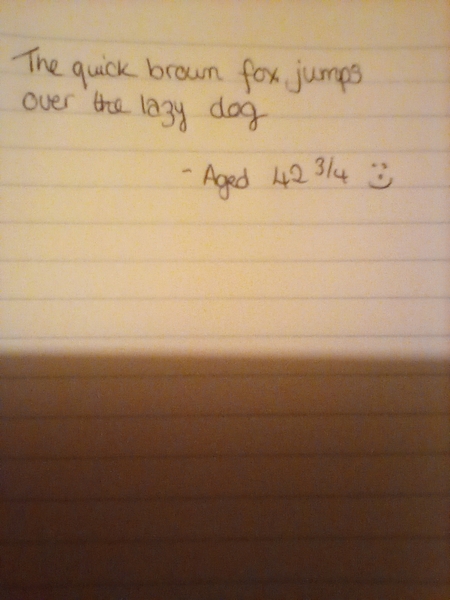 The quick brown fox jumps
over the lazy dog
- Aged 42 3/4 :)